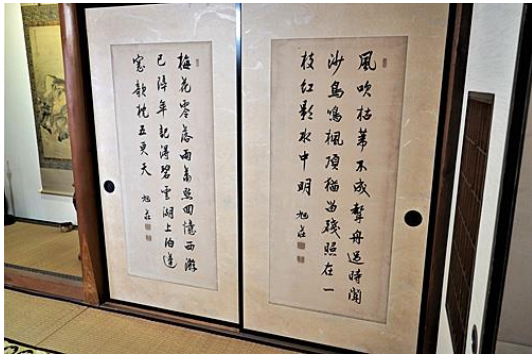 風吹枯葦不成聲舟過時聞
沙鳥鳴楓頂猶留殘照在一
枝紅影水中明 旭荘
梅花零落雨蕭然回憶西游
已隔年記得碧雲湖上泊篷
窓欹枕五更天 旭荘